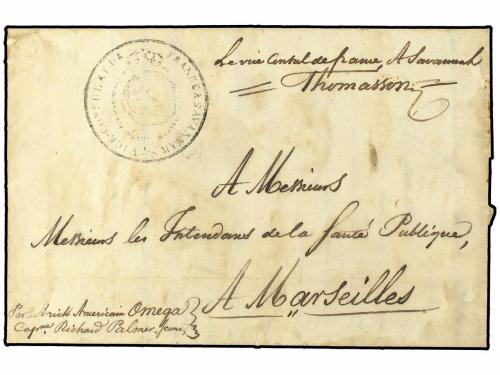 VICE-CONSULAT DE FRANCE A SAVANNAH
Le vice Consul de france, A Savannah
Thomasson
A Messieurs
Messieurs les Intendans de la Santé Publique,
A Marseilles
Par le Brick Américain Omega
Capne. Richard Palmer